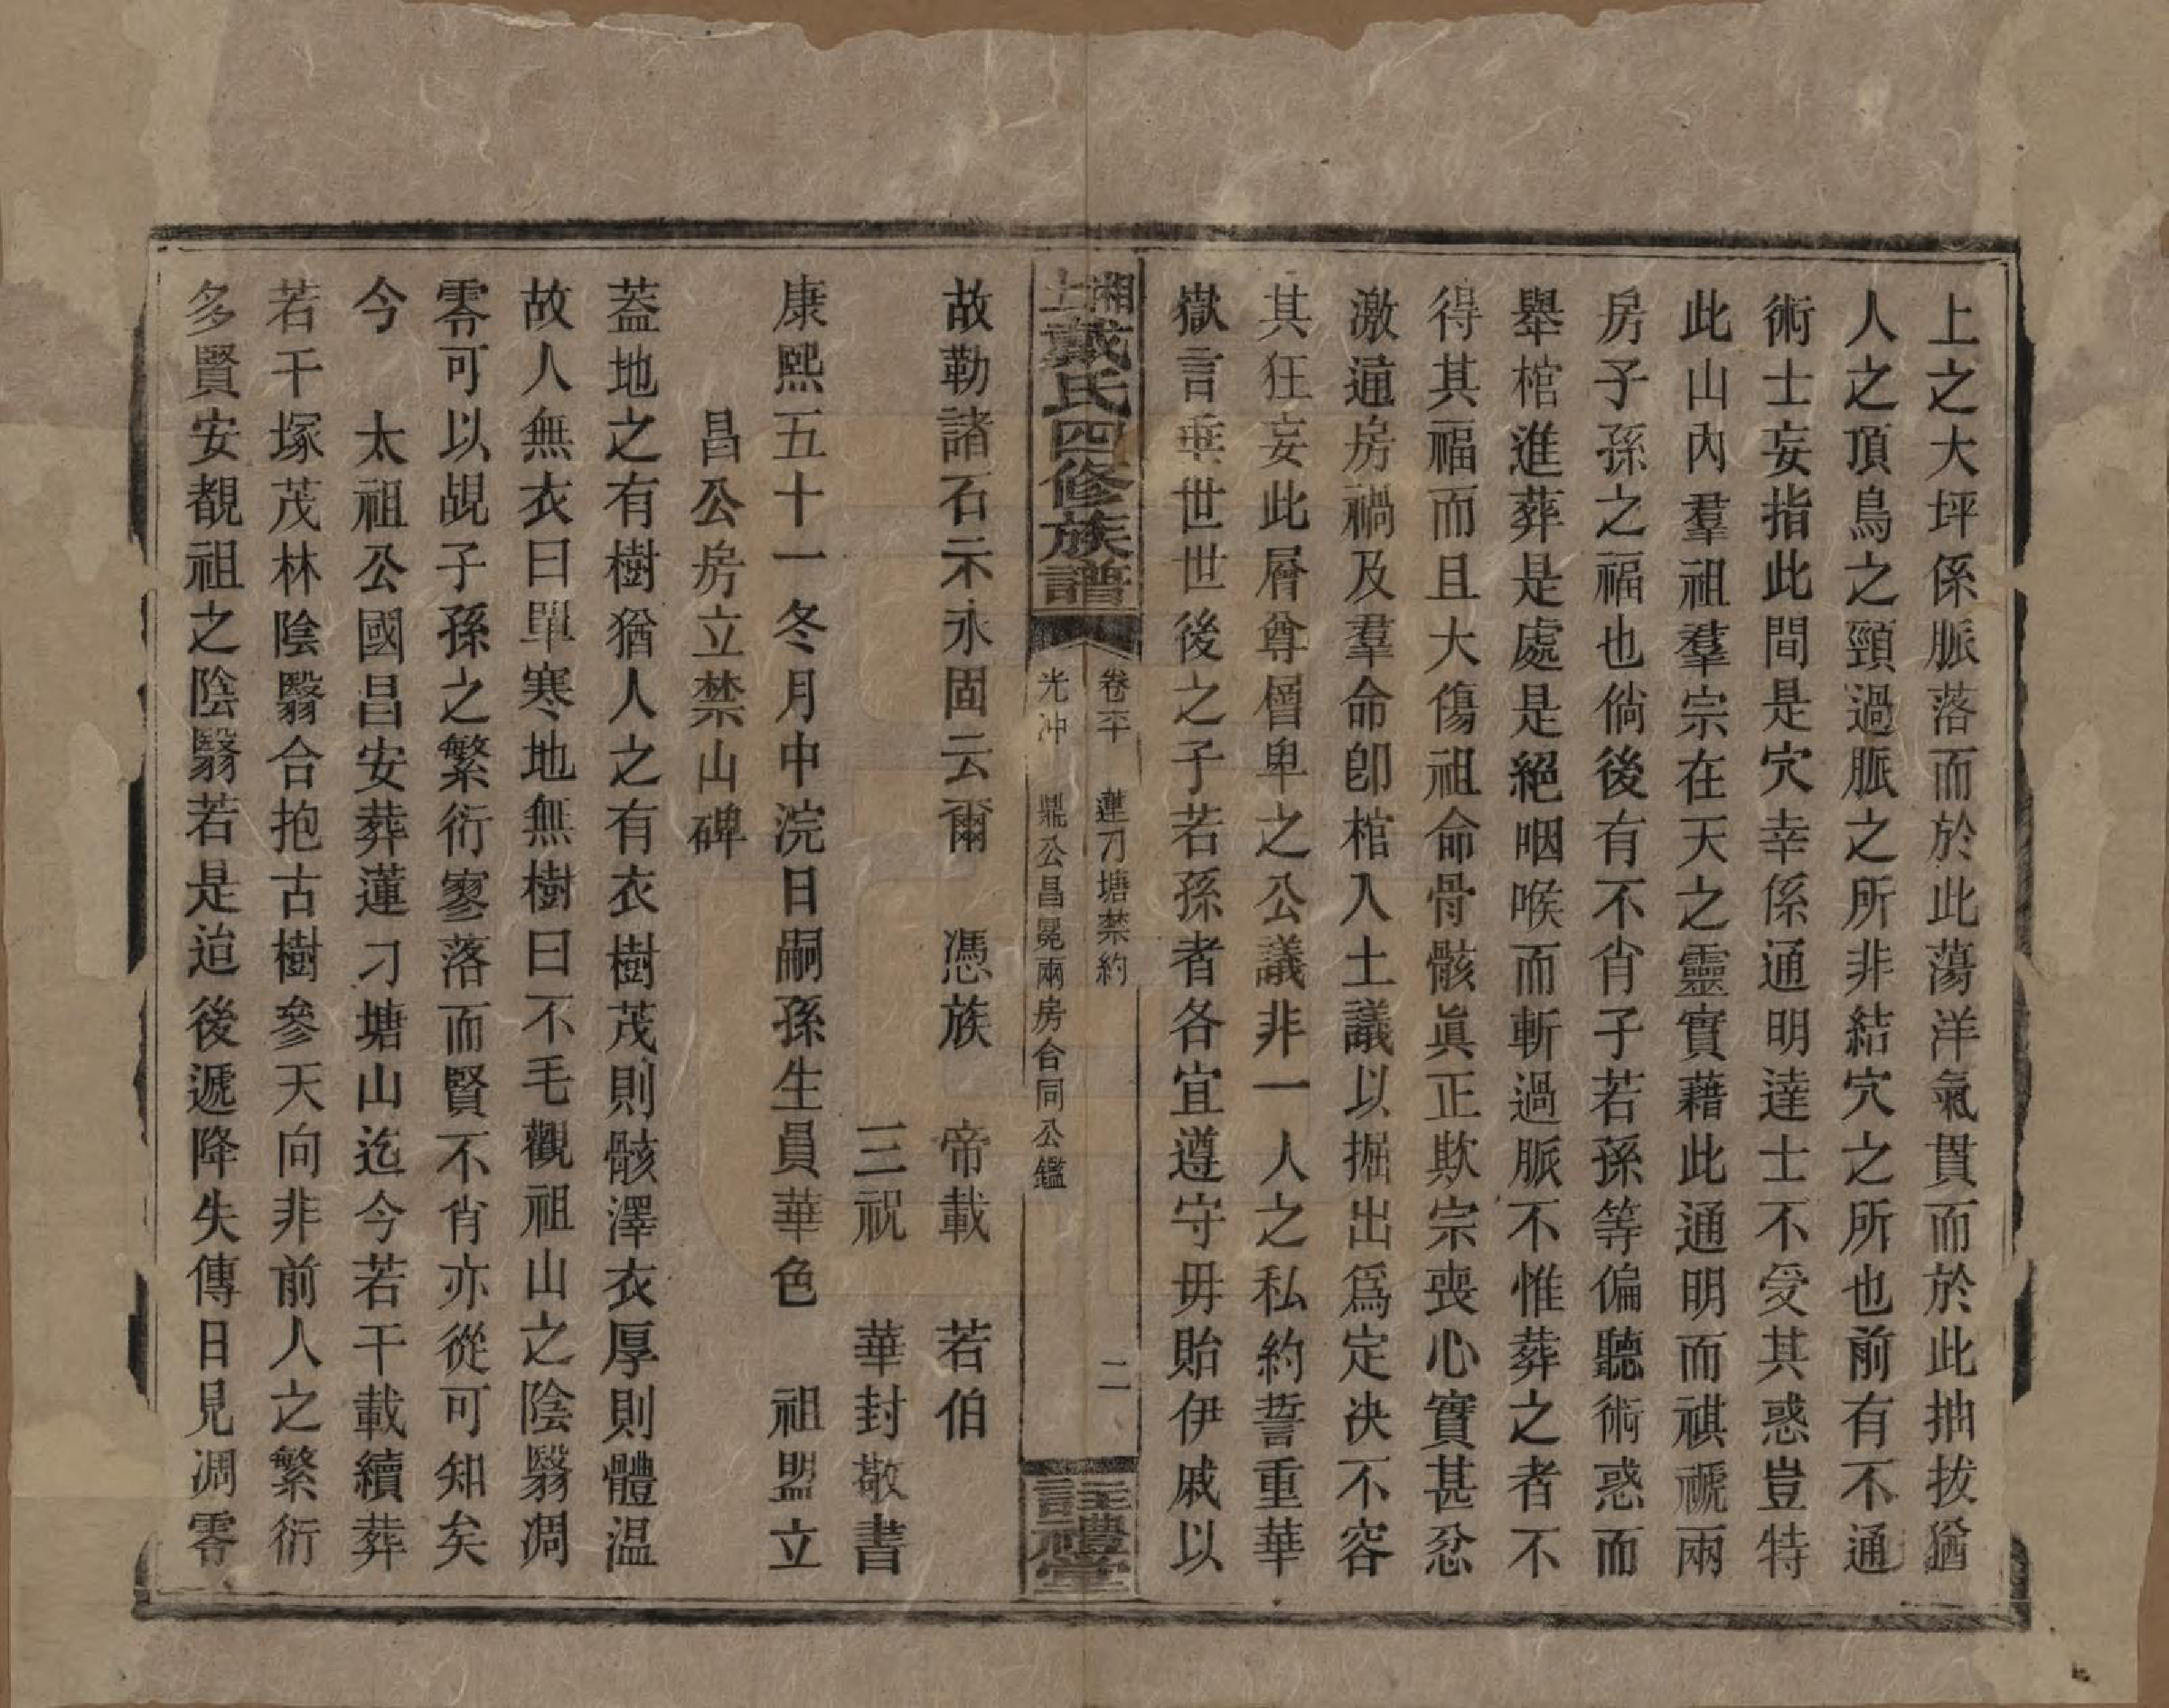 上之大坪係脈落而於此蕩洋氣貫而於此抽拔猶
人之頂鳥之頸過脈之所非結穴之所也前有不通
術士妄指此間是穴幸係通明達士不受其惑豈特
此山內羣祖羣宗在天之靈實藉此通明而祺禠兩
房子孫之福也倘後有不肖子若孫等偏聽術惑而
舉棺進葬是處是絕咽喉而斬過脈不惟葬之者不
得其福而且大傷祖命骨骸眞正欺宗喪心實甚忿
激通房禍及羣命卽棺入土議以掘出爲定决不容
其狂妄此層尊層卑之公議非一人之私約誓重華
嶽言垂世世後之子若孫者各宜遵守毋貽伊戚以
湘上戴氏四修族譜
卷三十 蓮刀塘禁約 二
光冲 鼎公昌冕兩房合同公鑑
註禮堂
故勒諸石示永固云爾 憑族 帝載 若伯
三祝 華封敬書
康熙五十一冬月中浣日嗣孫生員華色 祖盟立
昌公房立禁山碑
葢地之有樹猶人之有衣樹茂則骸澤衣厚則體温
故人無衣曰單寒地無樹曰不毛觀祖山之陰翳凋
零可以覘子孫之繁衍寥落而賢不肖亦從可知矣
今 太祖公國昌安葬蓮刁塘山迄今若干載續葬
若干塚茂林陰翳合抱古樹參天向非前人之繁衍
多賢安覩祖之陰翳若是迨後遞降失傳日見凋零